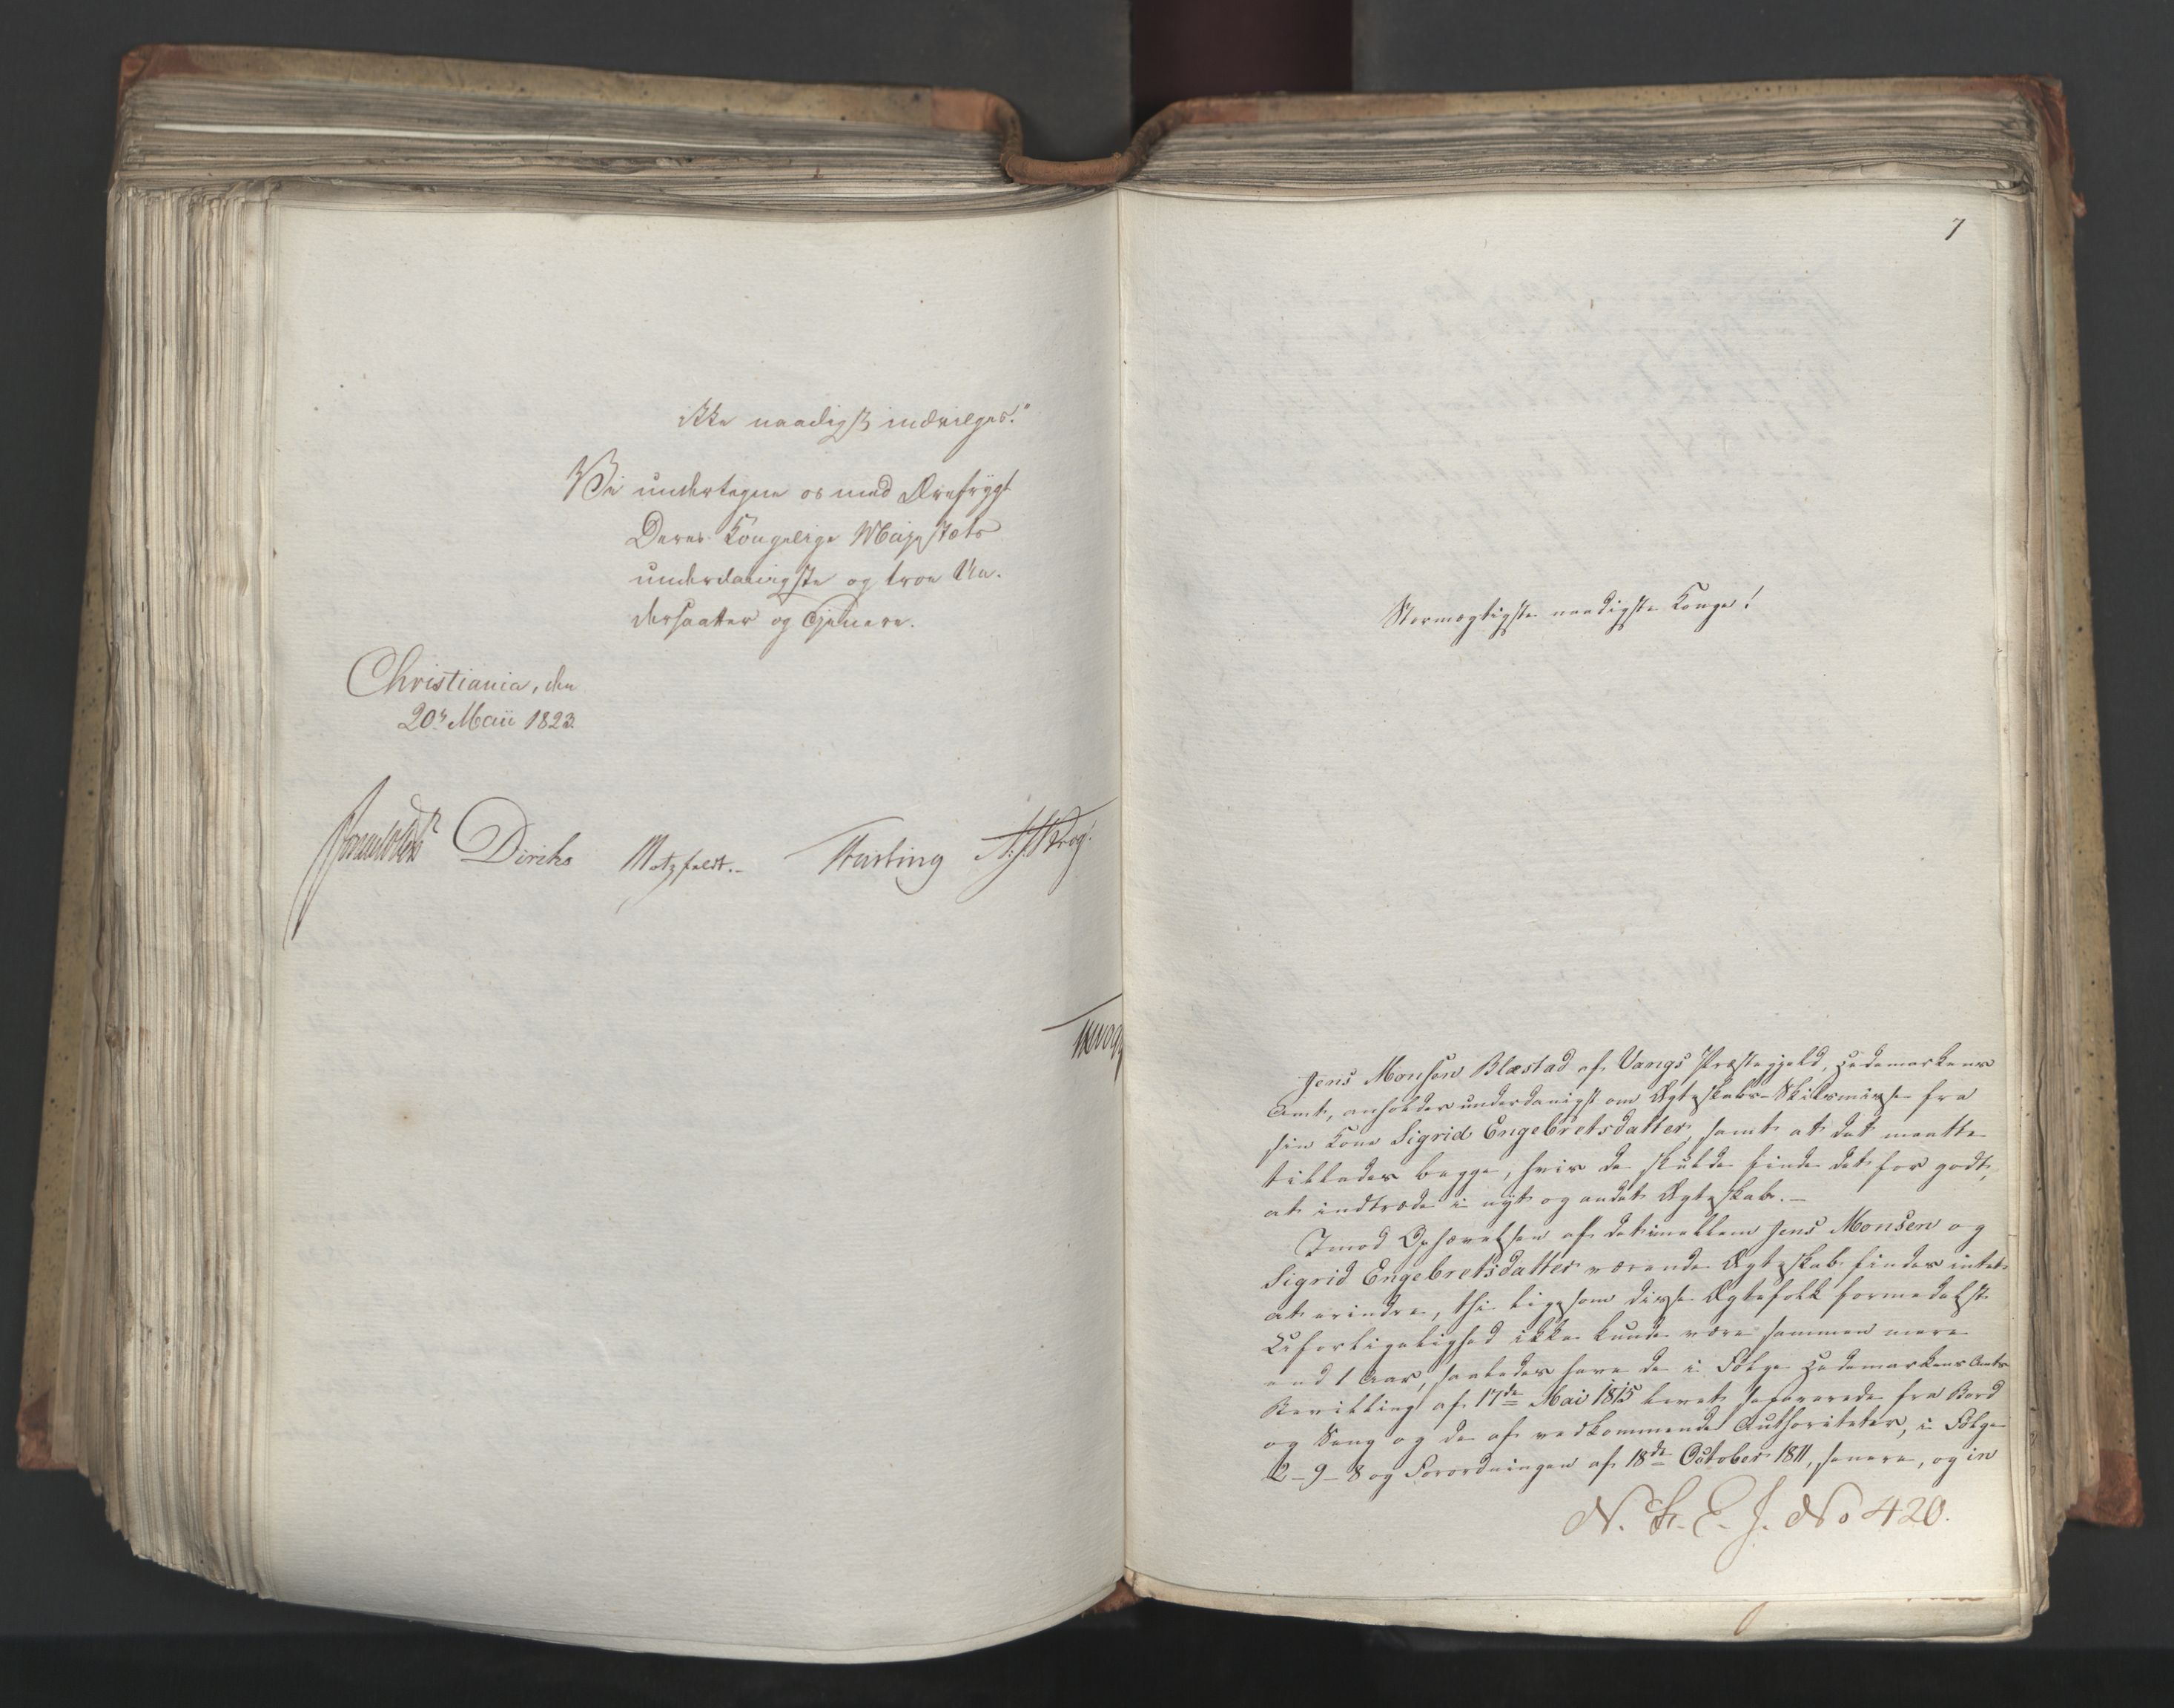 ikke naadigst indvilges."
Vi undertegne os med Ærefrygt
Deres Kongelige Majestæts
underdanigste og troe Un-
dersaatter og Tjenere.
Christiania, den
20de Maii 1823.
Diriks Motzfeldt.- Fasting
7
Stormægtigste naadigste Konge!
Jens Monsen Blæstad af Vangs Præstegjeld, Hedemarkens
Amt, anholder underdanigst om Ægteskabs-Skilsmisse fra
sin Kone Sigrid Engebretsdatter, samt at det maatte
tillades begge, hvis de skulde finde det for godt,
at indtræde i nyt og andet Ægteskab. -
Imod Ophævelsen af det imellem Jens Monsen og
Sigrid Engebretsdatter værende Ægteskab findes intet
at erindre, thi ligesom disse Ægtefolk formedelst
Uforligelighed ikke kunde være sammen mere
end 1 Aar, saaledes have de i Følge Hedemarkens Amts
Bevilling af 17de Mai 1815 levet separerede fra Bord
og Seng og de af vedkommende Authoriteter, i Følge
2-9-8 og Forordningen af 18de October 1811, senere, og in
N. S. E. J. No 420.